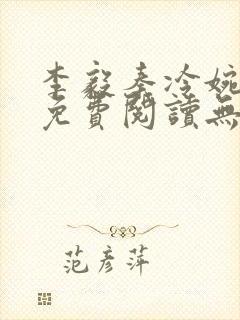 李毅秦冷婉
免費閱讀無
范彥萍